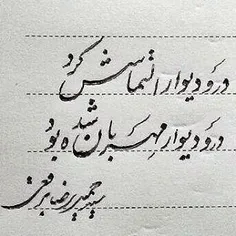 در و دیوار التماسش کرد
در و دیوار مهربان شده بود
سید حمیدرضا برقعی